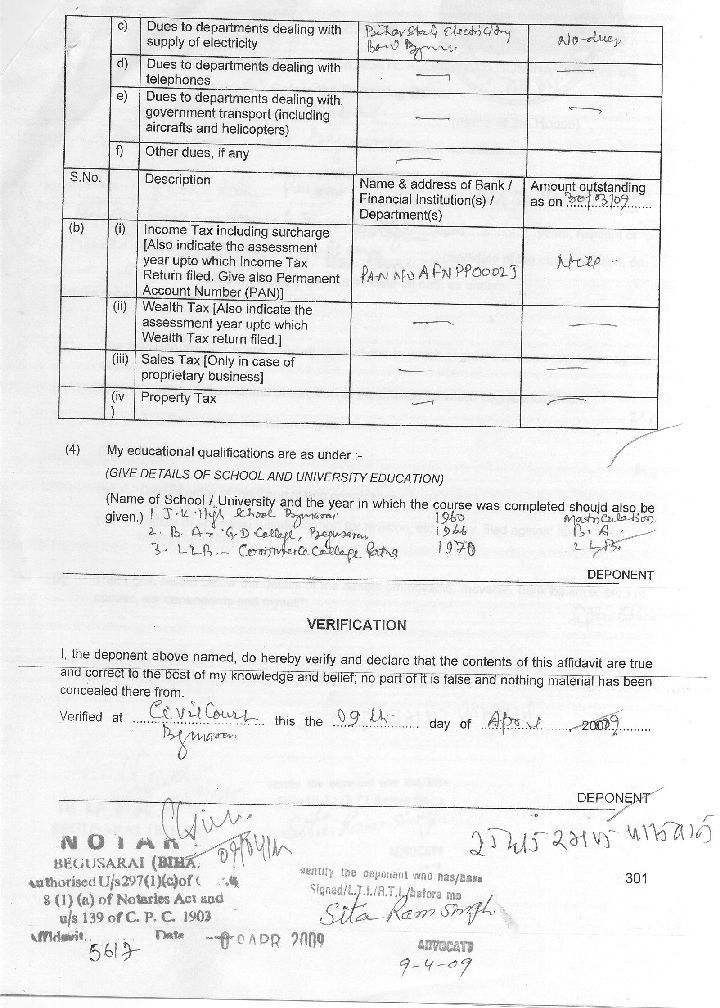 c) Dues to departments dealing with supply of electricity Bihar State Electricity Board No-dues
d) Dues to departments dealing with telephones —
e) Dues to departments dealing with government transport (including aircrafts and helicopters) —
f) Other dues, if any —
S.No. Description Name & address of Bank / Financial Institution(s) / Department(s) Amount outstanding as on 30/03/09
(b) (i) Income Tax including surcharge
[Also indicate the assessment
year upto which Income Tax
Return filed. Give also Permanent
Account Number (PAN)] PAN NO AFNPP0002J
(ii) Wealth Tax [Also indicate the
assessment year upto which
Wealth Tax return filed.] —
(iii) Sales Tax [Only in case of
proprietary business] —
(iv) Property Tax —
(4) My educational qualifications are as under :-
(GIVE DETAILS OF SCHOOL AND UNIVERSITY EDUCATION)
(Name of School / University and the year in which the course was completed should also be
given.) 1 J.K. High School Begusarai 1960 Matriculation
2. B.A - G.D College, Begusarai 1966 B.A
3. LLB - Commerce College Patna 1970 LLB.
DEPONENT
VERIFICATION
I, the deponent above named, do hereby verify and declare that the contents of this affidavit are true
and correct to the best of my knowledge and belief; no part of it is false and nothing material has been
concealed there from.
Verified at Civil Court this the 09th day of April, 2009
DEPONENT
NOTAR
BEGUSARAI (BIHA
Authorised U/s297(1)(c)of C
8 (1) (a) of Notaries Act and
u/s 139 of C. P. C. 1903
Affidavit Date
5617
APR 2009
identify the deponent who has/have
Signed/L.T.I./R.T.I./before me
Sita Ram Singh
ADVOCATE
9-4-09
301